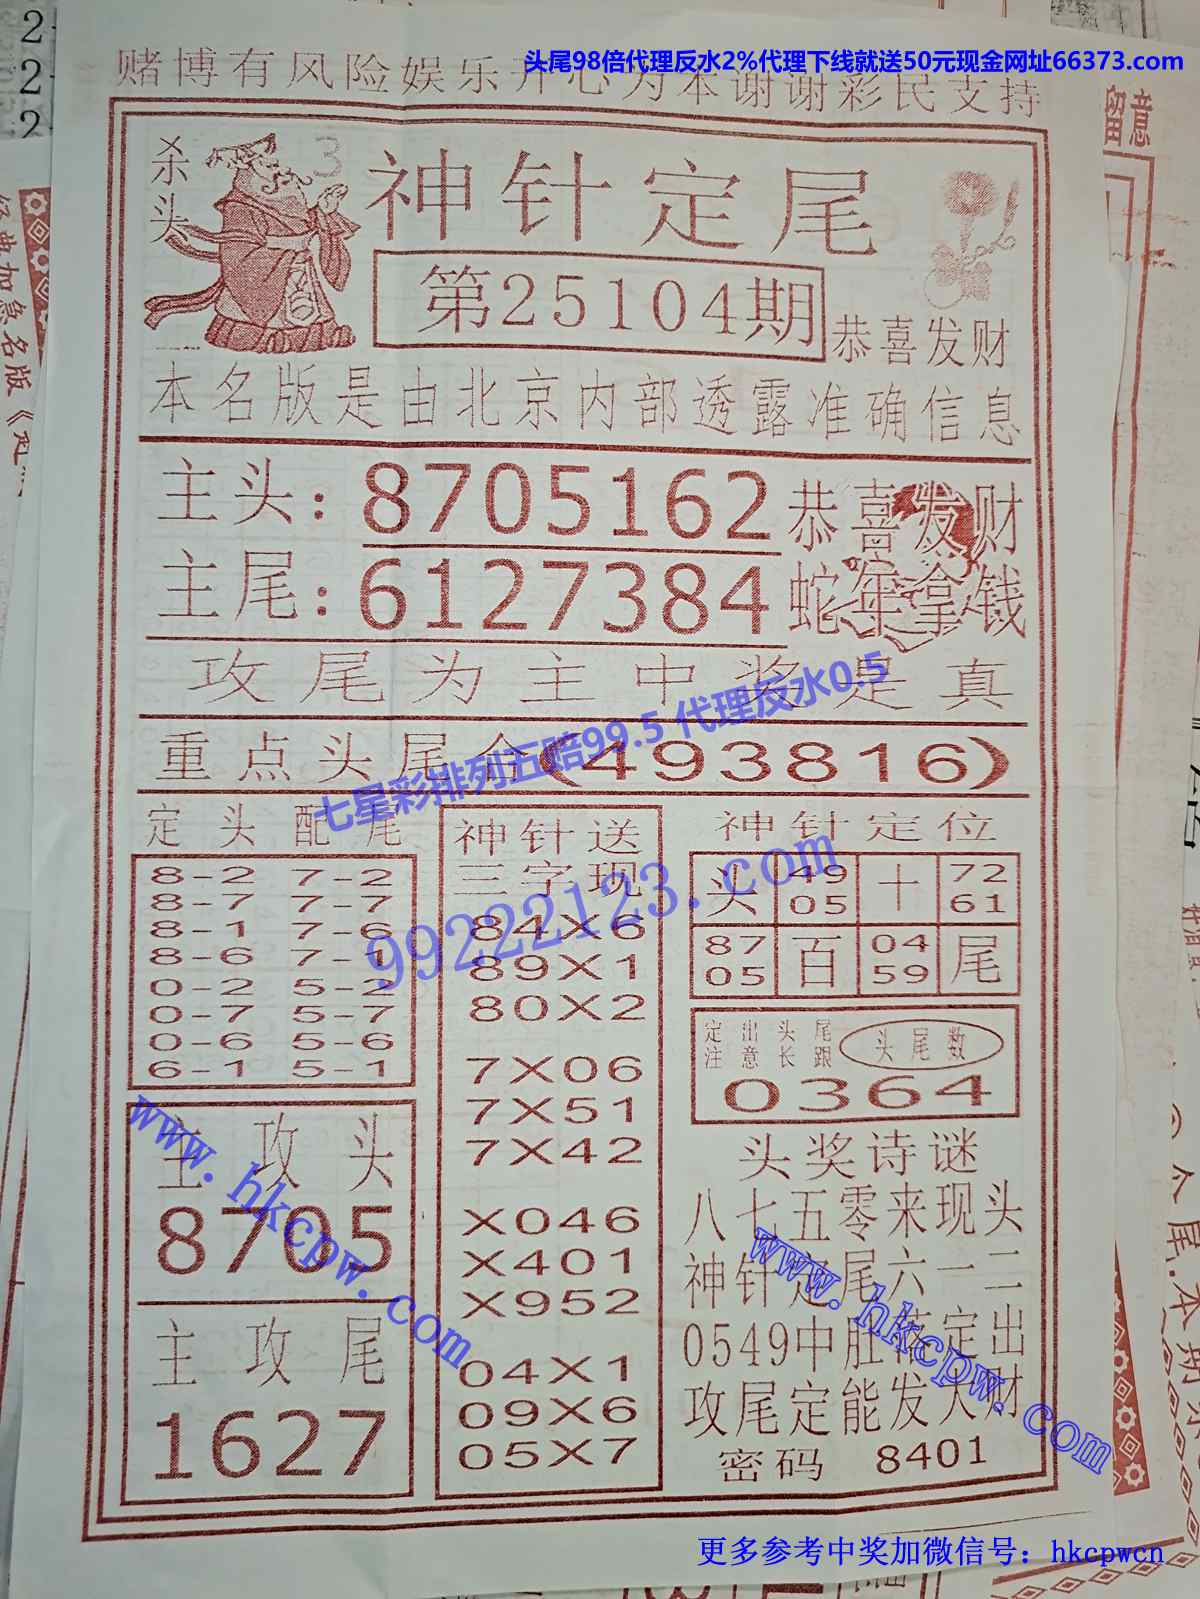 头尾98倍代理反水2%代理下线就送50元现金网址66373.com
赌博有风险娱乐开心为本谢谢彩民支持
留意
杀头
3
神针定尾
第25104期
恭喜发财
本名版是由北京内部透露准确信息
主头:8705162
恭喜发财
主尾:6127384
蛇年拿钱
攻尾为主中奖是真
七星彩排列五赔99.5 代理反水0.5
重点头尾合(493816)
定头配尾
8-2 7-2
8-7 7-7
8-1 7-6
8-6 7-1
0-2 5-2
0-7 5-7
0-6 5-6
6-1 5-1
主攻头
8705
主攻尾
1627
神针送
三字现
84X6
89X1
80X2
7X06
7X51
7X42
X046
X401
X952
04X1
09X6
05X7
神针定位
头 49 十 72
05 61
87 百 04 尾
05 59
定出头尾
注意长跟
头尾数
0364
头奖诗谜
八七五零来现头
神针定尾六一二
0549中肚落定出
攻尾定能发大财
密码 8401
99222123.com
www.hkcpw.com
www.hkcpw.com
更多参考中奖加微信号：hkcpwcn